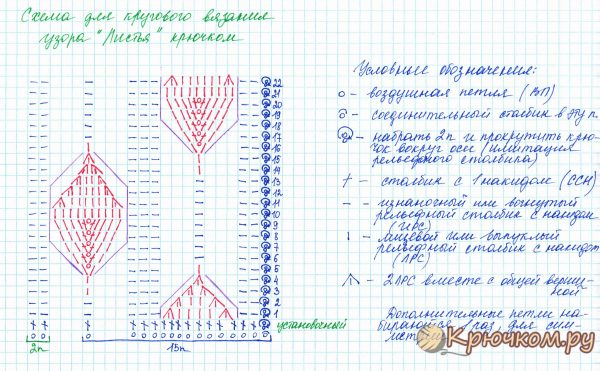 Схема для кругового вязания
узора "Листья" крючком
22
21
20
19
18
17
16
15
14
13
12
11
10
9
8
7
6
5
4
3
2
1
установочный
2п
15п
Условные обозначения:
- воздушная петля (ВП)
- соединительный столбик в эту п.
- набрать 2п и прокрутить крю-
чок вокруг оси (имитация
рельефного столбика)
- столбик с 1 накидом (ССН)
- изнаночный или вогнутый
рельефный столбик с накидом
(ИРС)
- лицевой или выпуклый
рельефный столбик с накидом
(ЛРС)
- 2ЛРС вместе с общей верши-
ной
Дополнительные петли на-
бираются 1 раз, для сим-
Крючком.ру